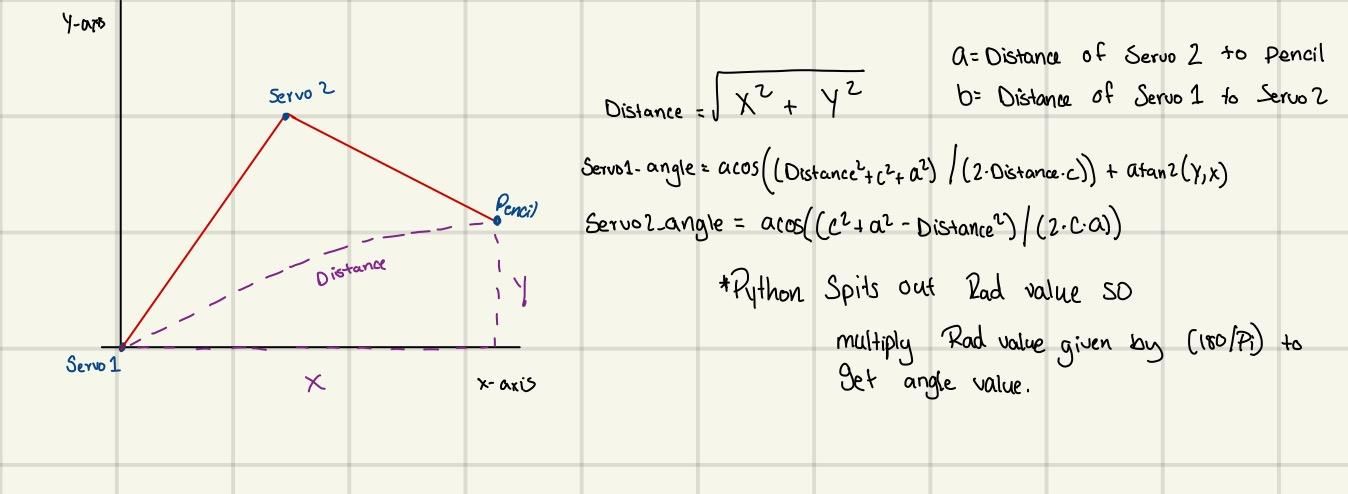 Y-axis
Servo 2
Pencil
Distance
Y
Servo 1
X
x-axis
a= Distance of Servo 2 to pencil
b= Distance of Servo 1 to Servo 2
Distance = √X² + Y²
Servo1-angle = acos((Distance²+c²+a²) /(2·Distance·c)) + atan2(Y,x)
Servo2_angle = acos((c²+a² - Distance²)/(2·c·a))
*Python Spits out Rad value so
multiply Rad value given by (180/Pi) to
get angle value.